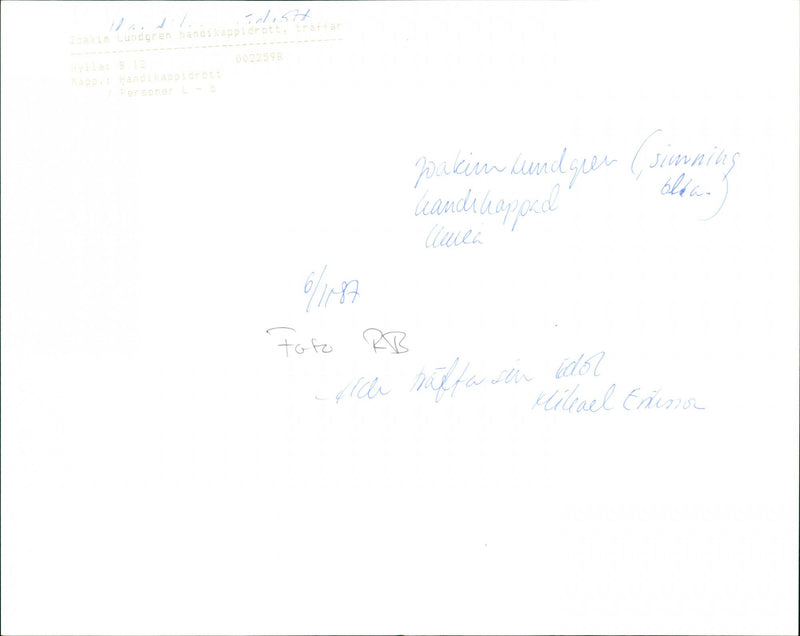 Joakim Lundgren handikappidrott, träffar
Hylla: B 12 0022598
Kapp.: Handikappidrott
/ Personer L - Ö
Joakim Lundgren (simning
handikappad
Umeå
6/11-87
Foto RB
träffa sin idol
Mikael Eriksson